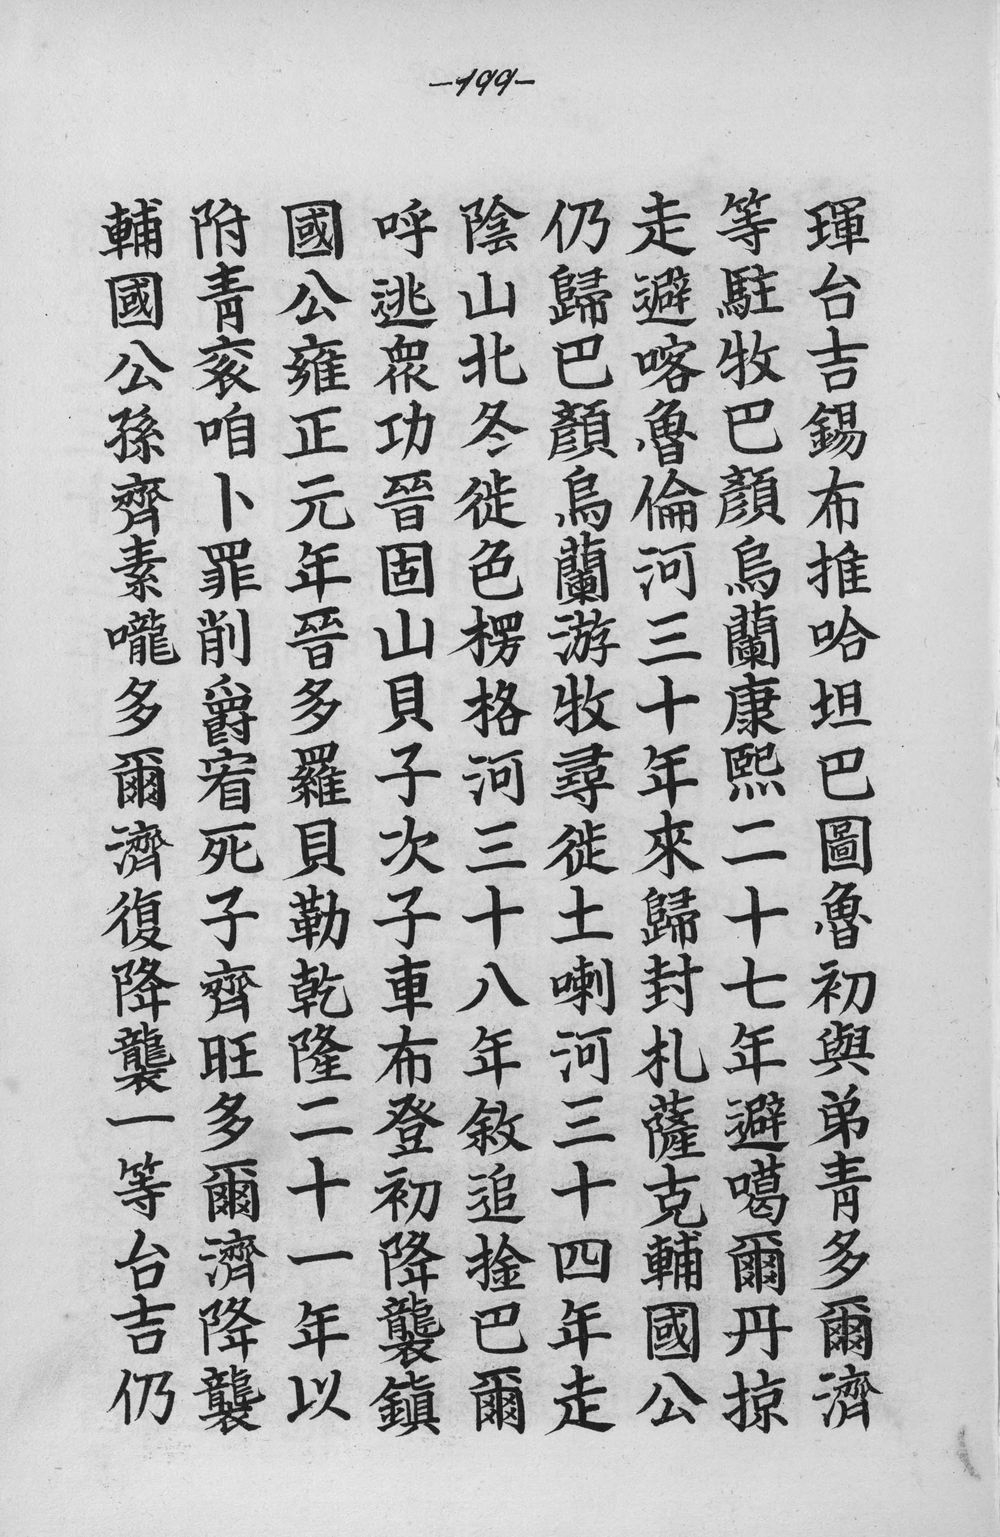 -199-
琿台吉錫布推哈坦巴圖魯初與弟青多爾濟
等駐牧巴顏烏蘭康熙二十七年避噶爾丹掠
走避喀魯倫河三十年來歸封札薩克輔國公
仍歸巴顏烏蘭游牧尋徙土喇河三十四年走
陰山北冬徙色楞格河三十八年敘追捡巴爾
呼逃衆功晉固山貝子次子車布登初降襲鎮
國公雍正元年晉多羅貝勒乾隆二十一年以
附青袞咱卜罪削爵宥死子齊旺多爾濟降襲
輔國公孫齊素嚨多爾濟復降襲一等台吉仍